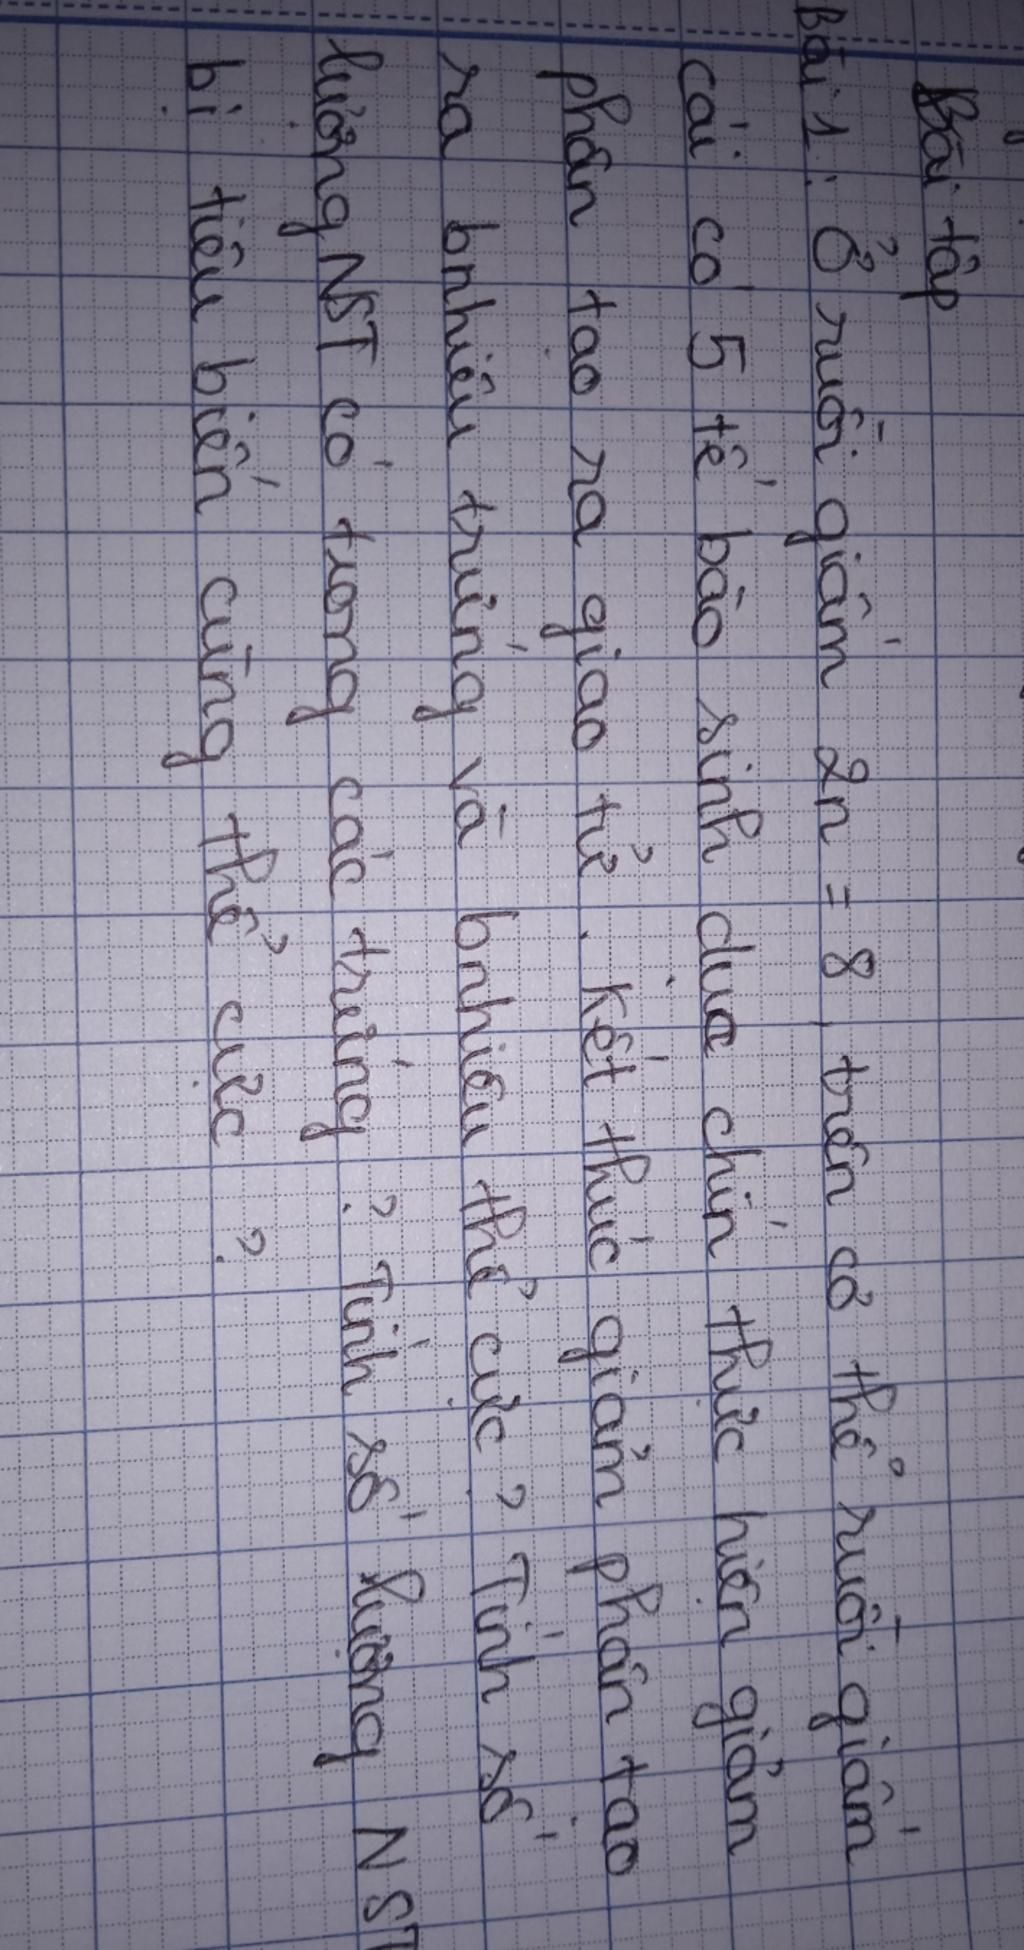 Bài tập
Bài 1: Ở ruồi giấm 2n = 8, trên cơ thể ruồi giấm
cái có 5 tế bào sinh dục chín thực hiện giảm
phân tạo ra giao tử. Kết thúc giảm phân tạo
ra bnhiêu trứng và bnhiêu thể cực? Tính số
lượng NST có trong các trứng? Tính số lượng NST
bị tiêu biến cùng thể cực?